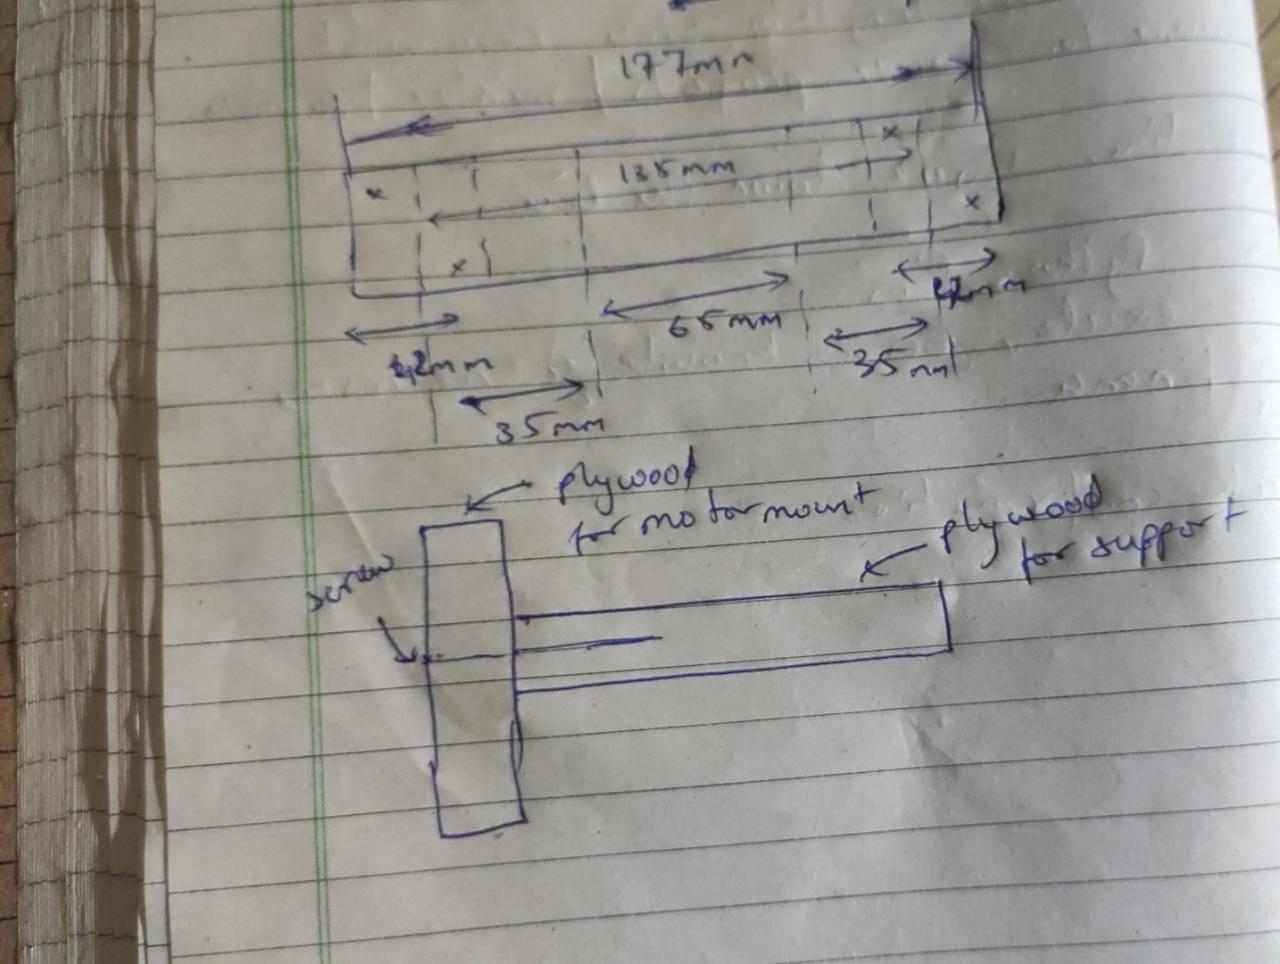 177mm
x x
135mm
x
x
65mm
35mm
35mm
plywood
for motor mount
plywood
for support
screw